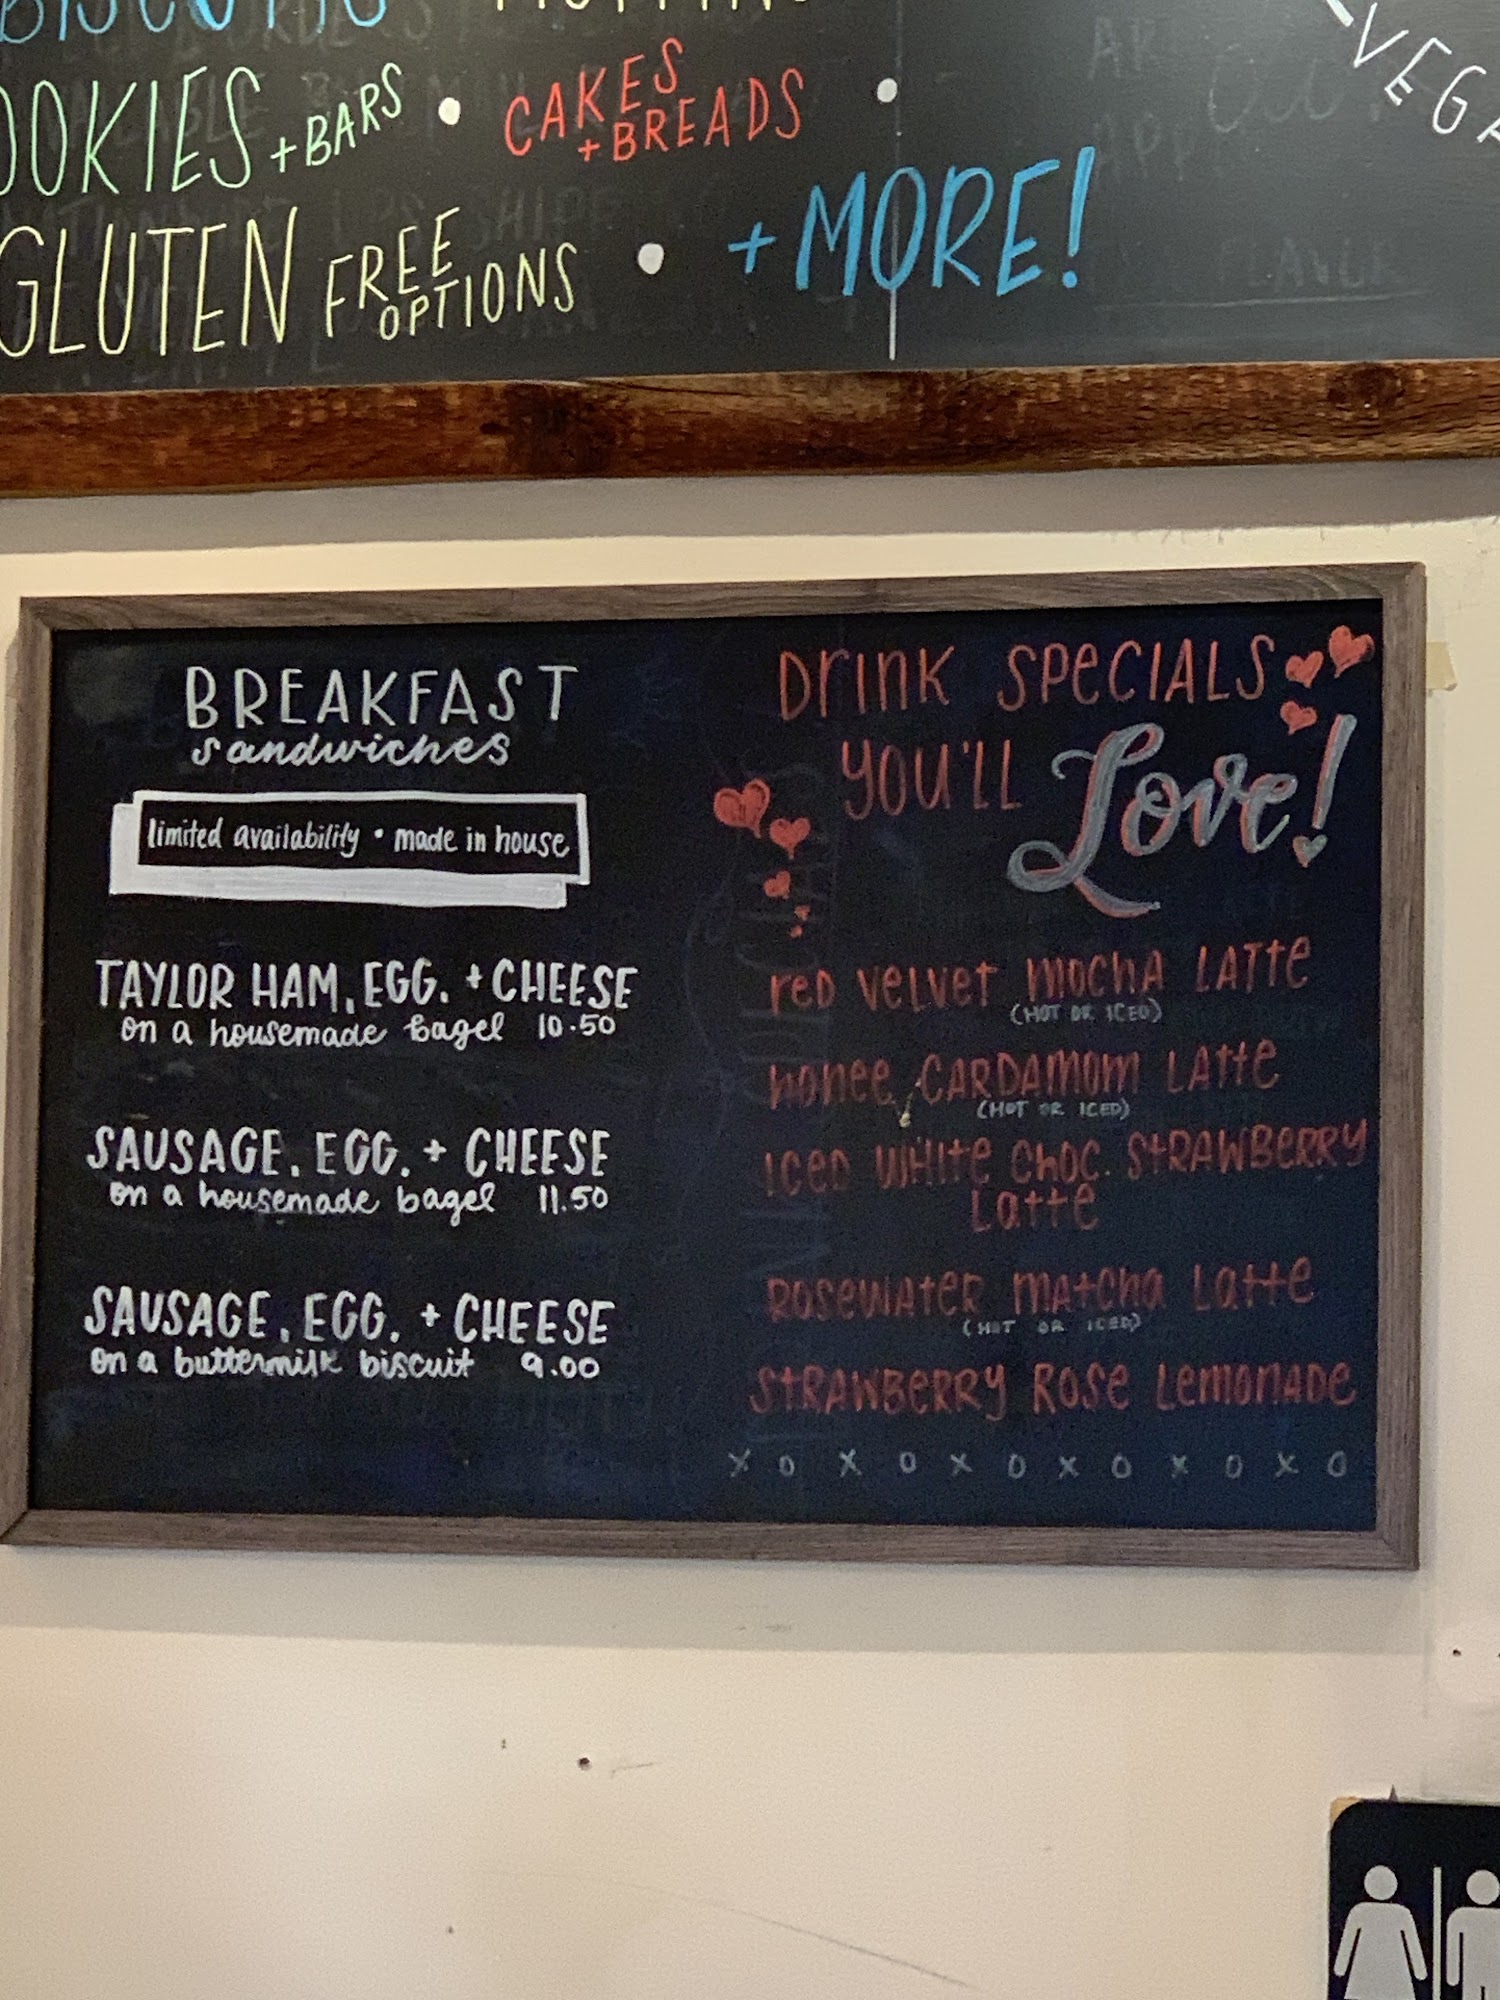 + BARS
CAKES
+ BREADS
GLUTEN FREE
OPTIONS
+ MORE!
BREAKFAST
sandwiches
limited availability • made in house
TAYLOR HAM, EGG, + CHEESE
on a housemade bagel 10.50
SAUSAGE, EGG, + CHEESE
on a housemade bagel 11.50
SAUSAGE, EGG, + CHEESE
on a buttermilk biscuit 9.00
DrINK SPeCIALS
YOU'LL Love!
reD velvet mochA LATTe
(HOT OR ICED)
honee CARDAmom LATTe
(HOT OR ICED)
ICeD WHITe CHOC. STRAWBERRY
LaTTe
ROSeWATeR mATCha LaTTe
(HOT OR ICED)
STRAWBeRRY ROSe LemoNADe
X O X O X O X O X O X O